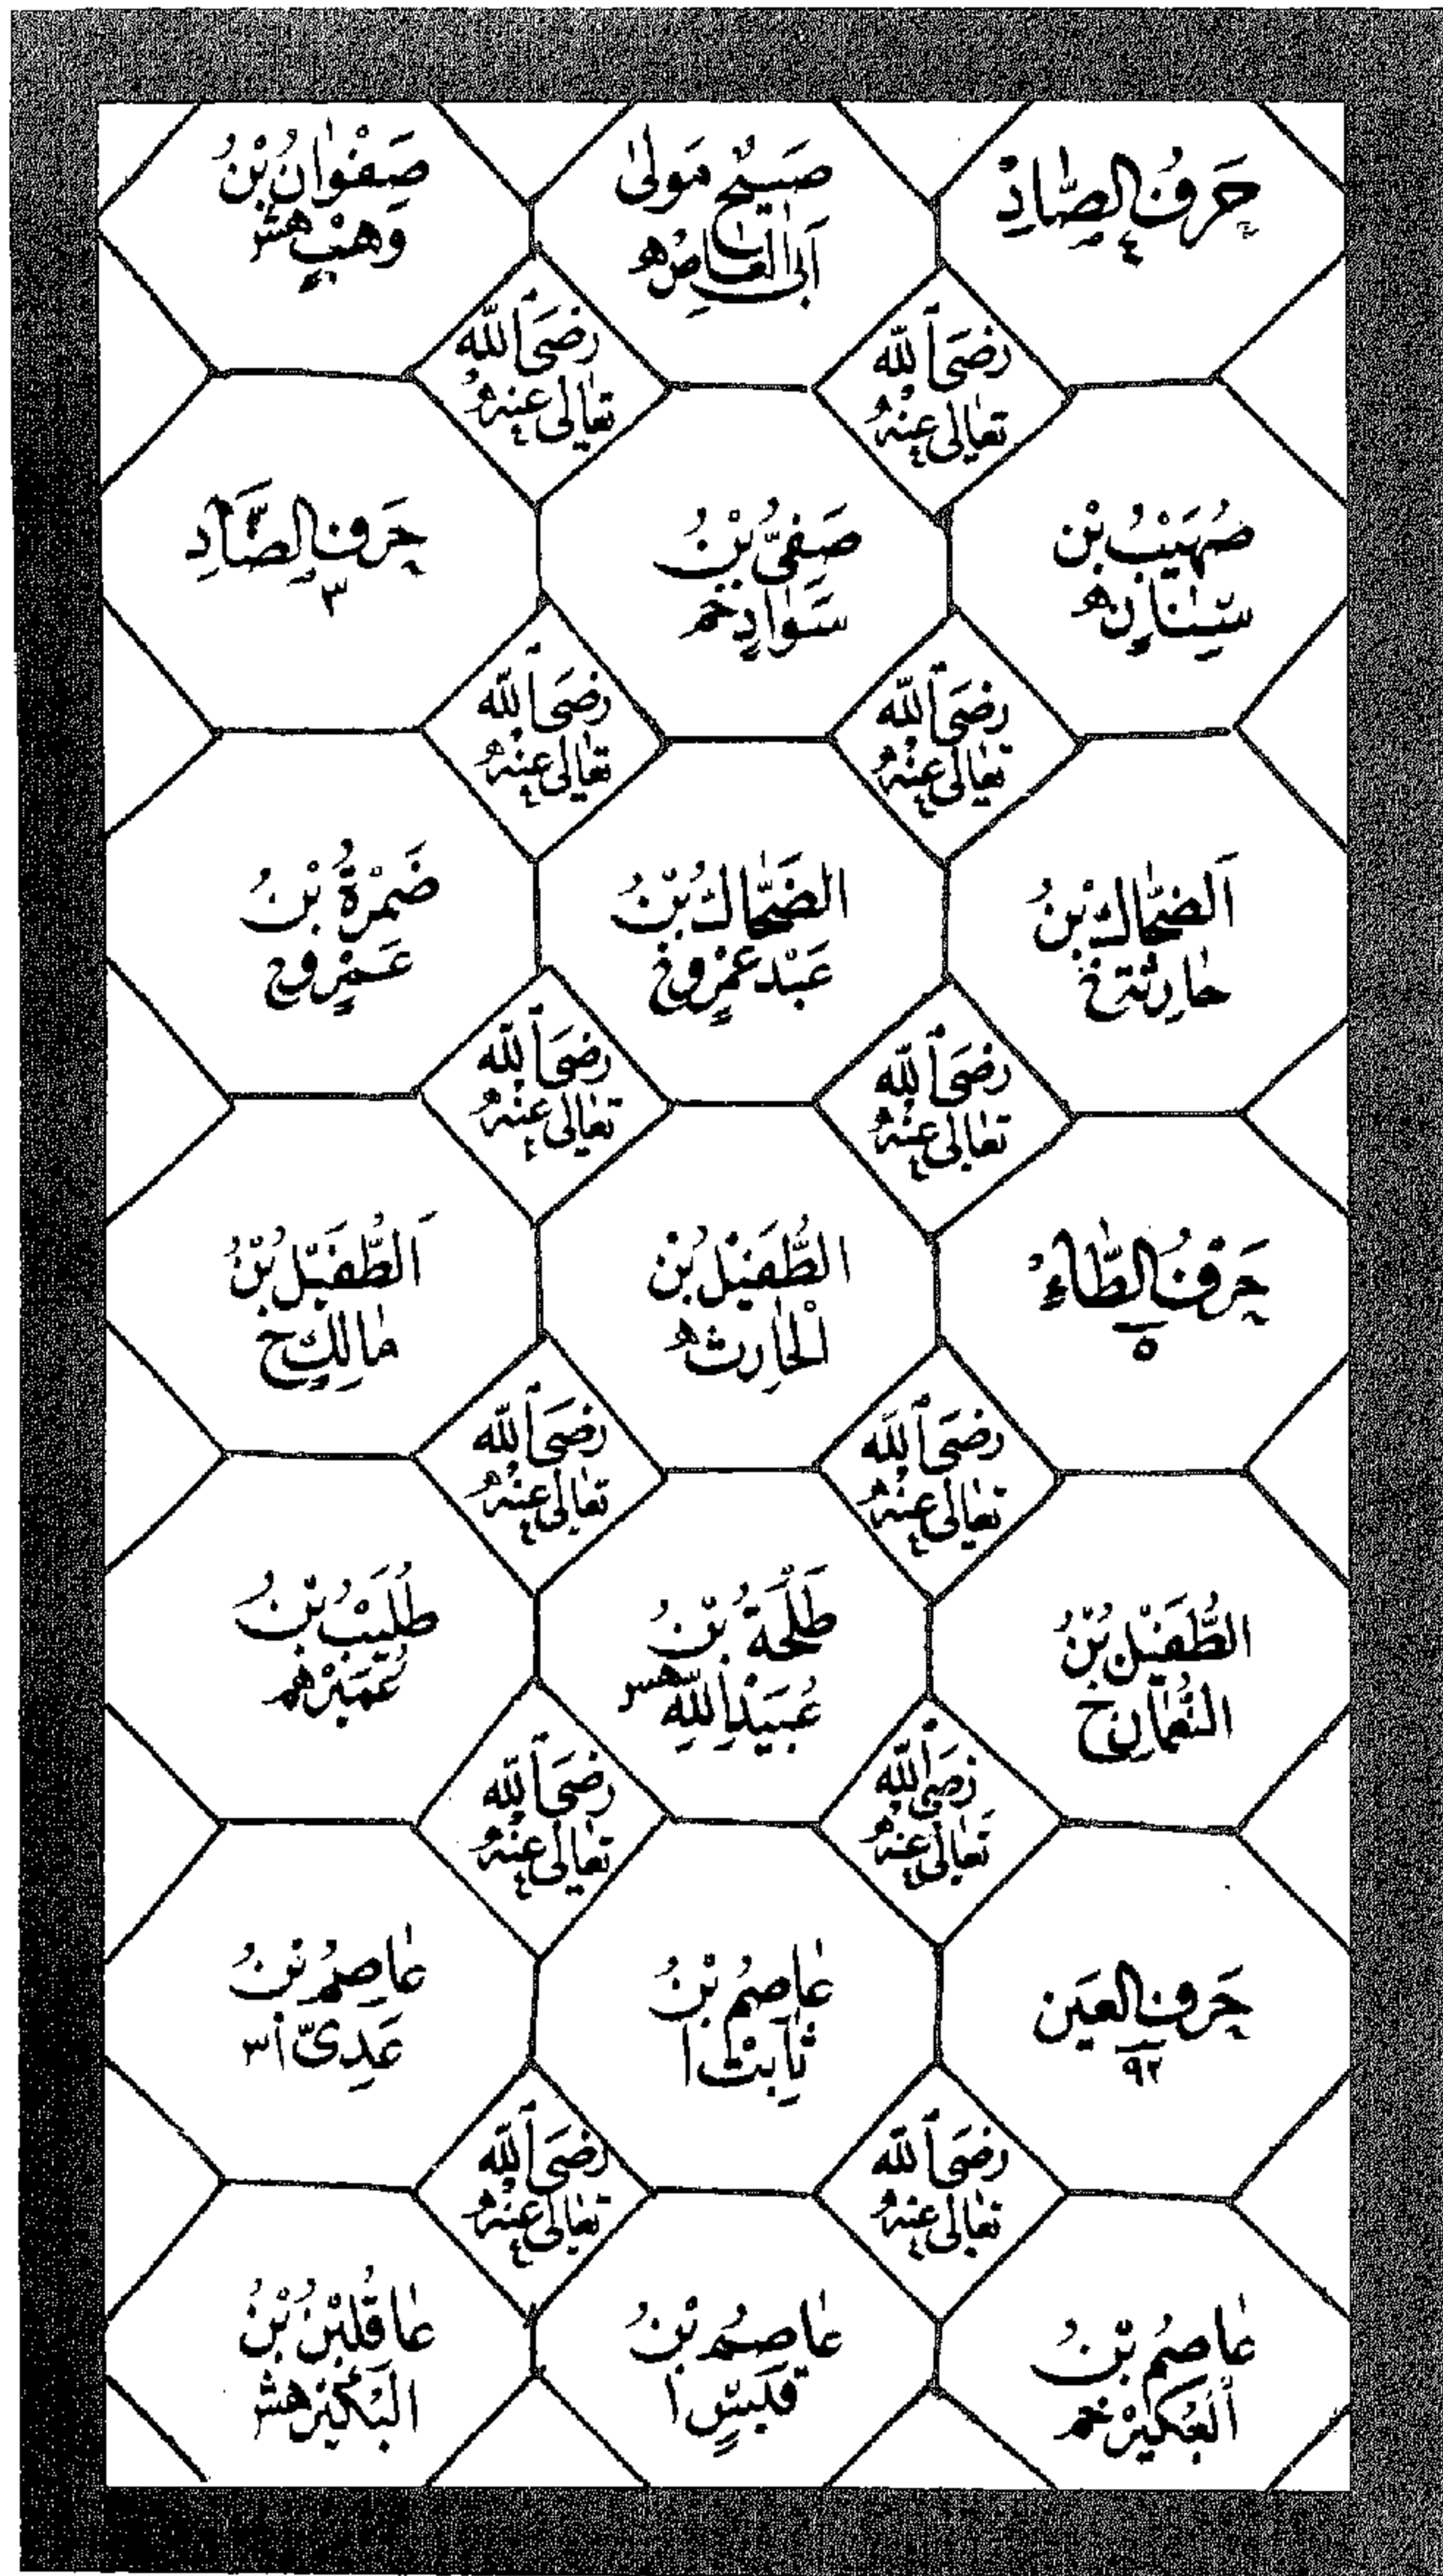 حَرْفُ الصَّادِ
٤
صَبِيحٌ مَولٰى
أَبِى الْعَاصِ ه
صَفْوَانُ بْنُ
وَهْبٍ هش
رَضِىَ اللّٰه
تَعَالٰى عَنْهُ
رَضِىَ اللّٰه
تَعَالٰى عَنْهُ
صُهَيْبُ بْن
سِنَانٍ ه
صَفِىُّ بْنُ
سَوَادٍ خم
حَرف الضَّادِ
٣
رَضِىَ اللّٰه
تَعَالٰى عَنْهُ
رَضِىَ اللّٰه
تَعَالٰى عَنْهُ
اَلضَّحَّاك بْنُ
حَارِثَة خ
الضَّحَّاك بْنُ
عَبْد عَمْرٍو خ
ضَمْرَةُ بْنُ
عَمْرٍو خ
رَضِىَ اللّٰه
تَعَالٰى عَنْهُ
رَضِىَ اللّٰه
تَعَالٰى عَنْهُ
حَرْفُ الطَّاءِ
٥
الطُّفَيْل بْنُ
الْحَارِث ه
اَلطُّفَيْل بْنُ
مَالِكٍ خ
رَضِىَ اللّٰه
تَعَالٰى عَنْهُ
رَضِىَ اللّٰه
تَعَالٰى عَنْهُ
الطُّفَيْل بْنُ
النُّعْمَانِ خ
طَلْحَةُ بْنُ
عُبَيْدِ اللّٰهِ هس
طُلَيْبُ بْنُ
عُمَيْرٍ هم
رَضِىَ اللّٰه
تَعَالٰى عَنْهُ
رَضِىَ اللّٰه
تَعَالٰى عَنْهُ
حَرف العَين
٩٢
عَاصِمُ بْنُ
ثَابِت ا
عَاصِمُ بْنُ
عَدِىّ اس
رَضِىَ اللّٰه
تَعَالٰى عَنْهُ
رَضِىَ اللّٰه
تَعَالٰى عَنْهُ
عَاصِمُ بْنُ
الْعُكَيْر خم
عَاصِمُ بْنُ
قَيْسٍ ا
عَاقِلُ بْنُ
البُكَيْر هش